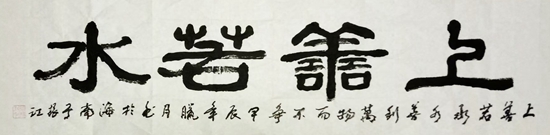 上善若水
上善若水水善利萬物而不争甲辰年臘月书於海南于江